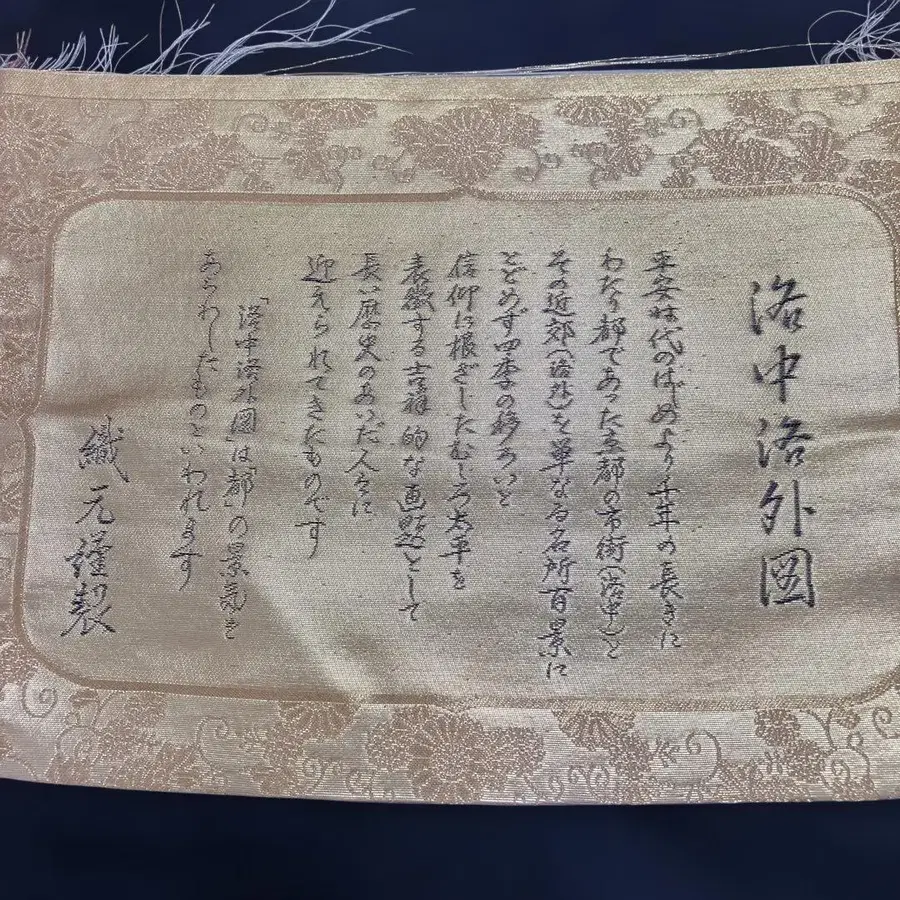 洛中洛外図
平安時代のはじめより千年の長きに
わたり都であった京都の市街(洛中)と
その近郊(洛外)を単なる名所百景に
とどめず四季の移ろいと
信仰に根ざしたむしろ太平を
表徴する吉祥的な画題として
長い歴史のあいだ人々に
迎えられてきたものです
「洛中洛外図」は「都」の景気を
あらわしたものといわれます
織元謹製